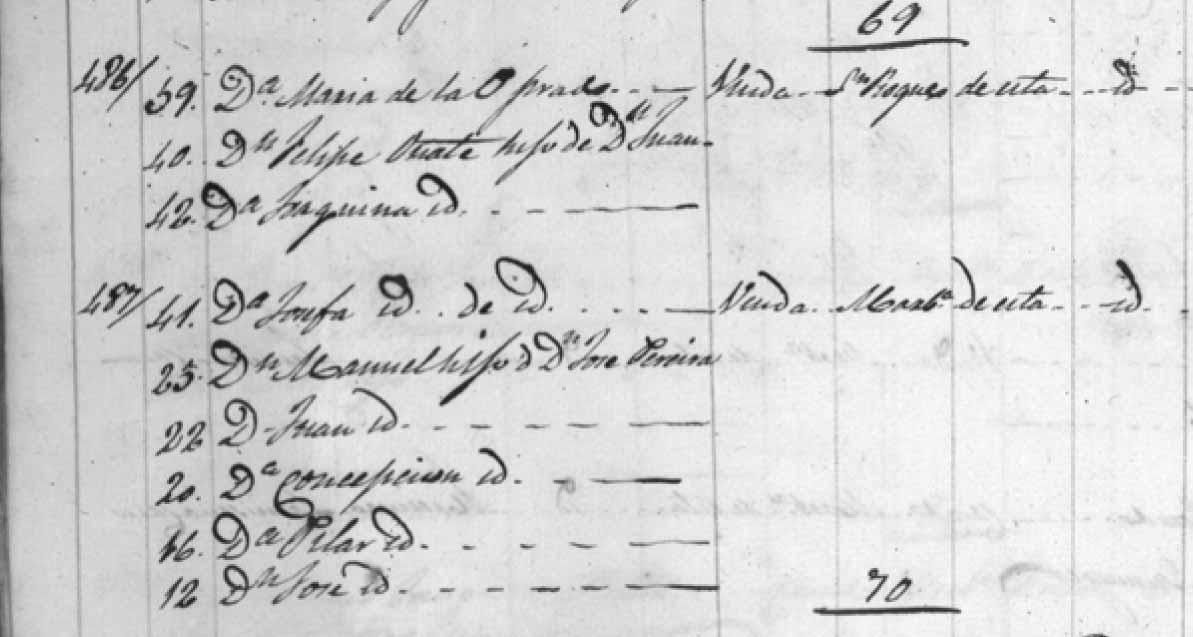 69
486/ 39. Dª Maria de la O prado - - - Viuda - Sn Roque de esta - - id - -
40. Dn Felipe Oñate hijo de Dn Juan -
42. Dª Joaquina id. - - ——
487/ 41. Dª Josefa id. . de id. . . . . — Viuda. Marbª de esta - - id. -
25. Dn Manuel hijo d Dn Jose Pereira
22 D - Juan id - - - - - - ——
20. Dª Concepcion id. - ——
16. Dª Pilar id - - - - - ——
12 Dn José id - - - - - ——
70